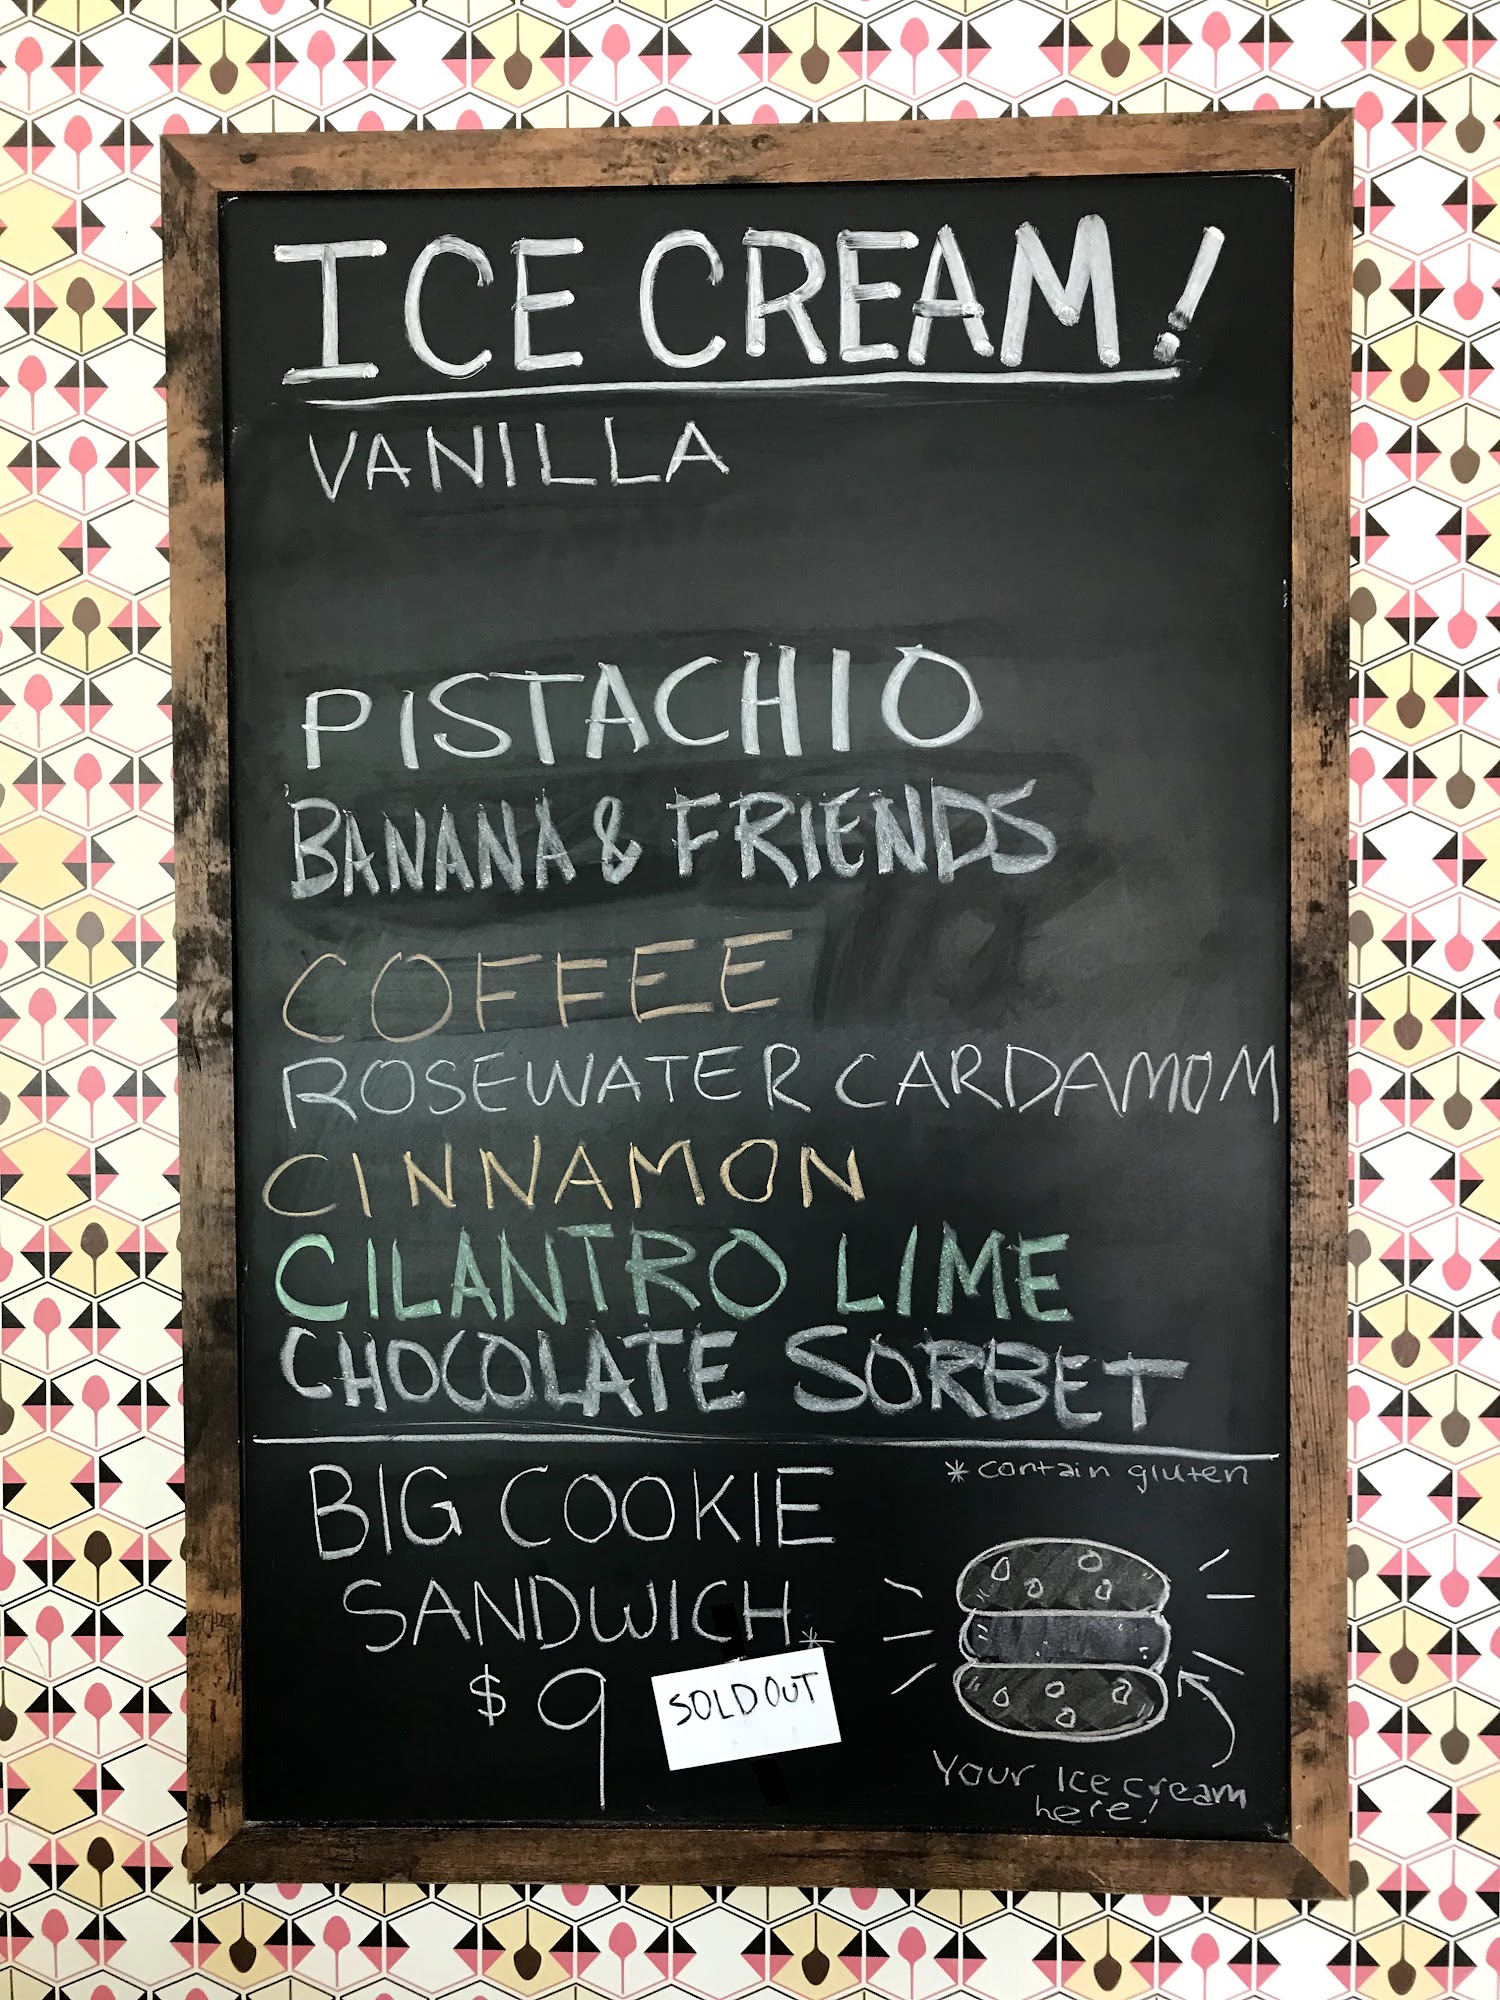 ICE CREAM!
VANILLA
PISTACHIO
BANANA & FRIENDS
COFFEE
ROSEWATER CARDAMOM
CINNAMON
CILANTRO LIME
CHOCOLATE SORBET
*contain gluten
BIG COOKIE
SANDWICH*
$9
SOLD OUT
Your Ice cream
here!